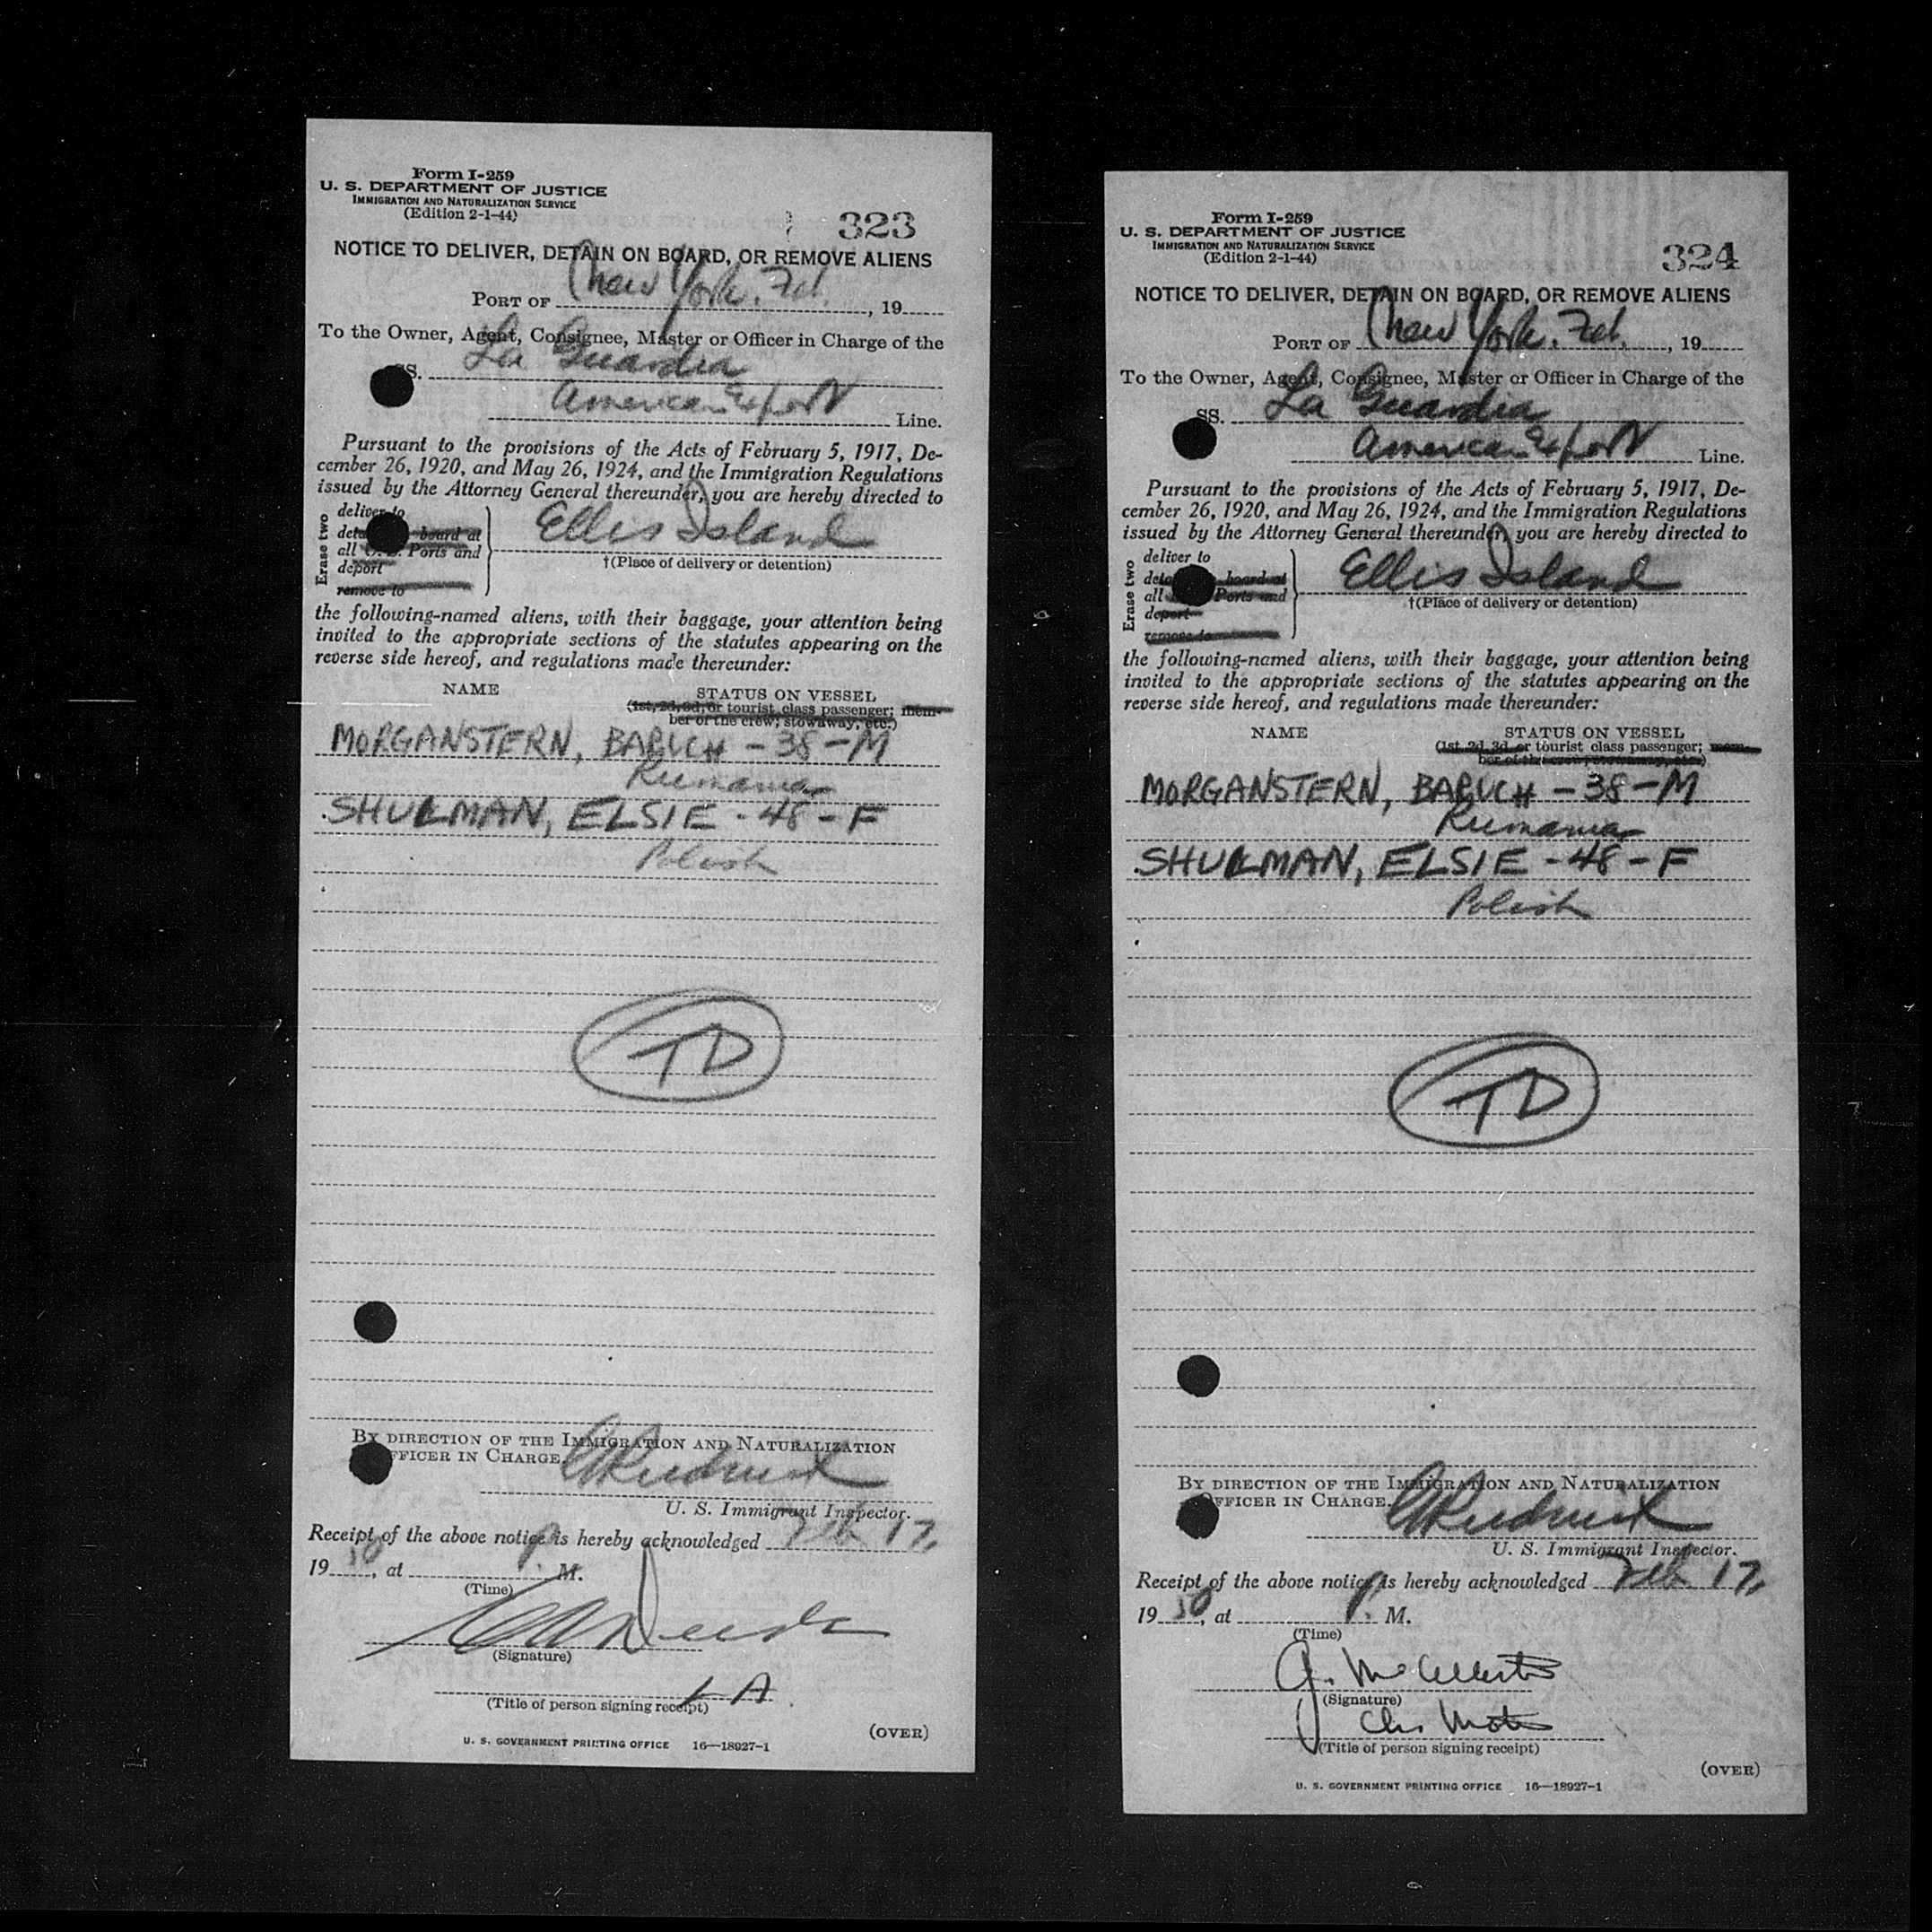 Form I-259
U. S. DEPARTMENT OF JUSTICE
IMMIGRATION AND NATURALIZATION SERVICE
(Edition 2-1-44)
323
NOTICE TO DELIVER, DETAIN ON BOARD, OR REMOVE ALIENS
PORT OF New York. Feb. , 19
To the Owner, Agent, Consignee, Master or Officer in Charge of the
SS. La Guardia
American Export Line.
Pursuant to the provisions of the Acts of February 5, 1917, De-
cember 26, 1920, and May 26, 1924, and the Immigration Regulations
issued by the Attorney General thereunder, you are hereby directed to
Erase two
deliver to
board at
all Ports and
deport
remove to
Ellis Island
†(Place of delivery or detention)
the following-named aliens, with their baggage, your attention being
invited to the appropriate sections of the statutes appearing on the
reverse side hereof, and regulations made thereunder:
NAME STATUS ON VESSEL
(1st, 2d, 3d, or tourist class passenger; mem-
ber of the crew; stowaway, etc.)
MORGANSTERN, BARUCH - 38 - M
Rumania
SHULMAN, ELSIE - 48 - F
Polish
TD
BY DIRECTION OF THE IMMIGRATION AND NATURALIZATION
OFFICER IN CHARGE.
U. S. Immigrant Inspector.
Receipt of the above notice is hereby acknowledged Feb 17,
19 50, at P. M.
(Time)
(Signature)
(Title of person signing receipt)
(OVER)
U. S. GOVERNMENT PRINTING OFFICE 16—18927-1
Form I-259
U. S. DEPARTMENT OF JUSTICE
IMMIGRATION AND NATURALIZATION SERVICE
(Edition 2-1-44)
324
NOTICE TO DELIVER, DETAIN ON BOARD, OR REMOVE ALIENS
PORT OF New York. Feb. , 19
To the Owner, Agent, Consignee, Master or Officer in Charge of the
SS. La Guardia
American Export Line.
Pursuant to the provisions of the Acts of February 5, 1917, De-
cember 26, 1920, and May 26, 1924, and the Immigration Regulations
issued by the Attorney General thereunder, you are hereby directed to
Erase two
deliver to
board at
all Ports and
deport
remove to
Ellis Island
†(Place of delivery or detention)
the following-named aliens, with their baggage, your attention being
invited to the appropriate sections of the statutes appearing on the
reverse side hereof, and regulations made thereunder:
NAME STATUS ON VESSEL
(1st, 2d, 3d, or tourist class passenger; mem-
ber of the crew; stowaway, etc.)
MORGANSTERN, BARUCH - 38 - M
Rumania
SHULMAN, ELSIE - 48 - F
Polish
TD
BY DIRECTION OF THE IMMIGRATION AND NATURALIZATION
OFFICER IN CHARGE.
U. S. Immigrant Inspector.
Receipt of the above notice is hereby acknowledged Feb 17,
19 50, at P. M.
(Time)
(Signature)
(Title of person signing receipt)
(OVER)
U. S. GOVERNMENT PRINTING OFFICE 16—18927-1